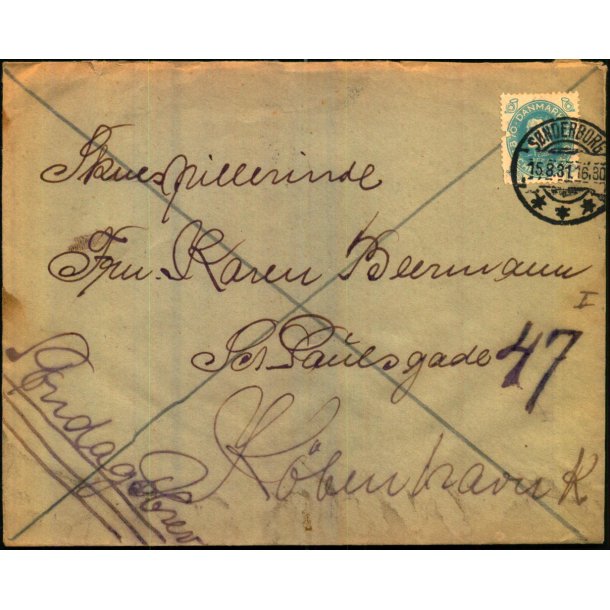 DANMARK
SØNDERBORG
15.8.31 16.30
Skuespillerinde
Fru. Karen Beermann
I
Sct Paulsgade 47
København K
Søndagsbrev